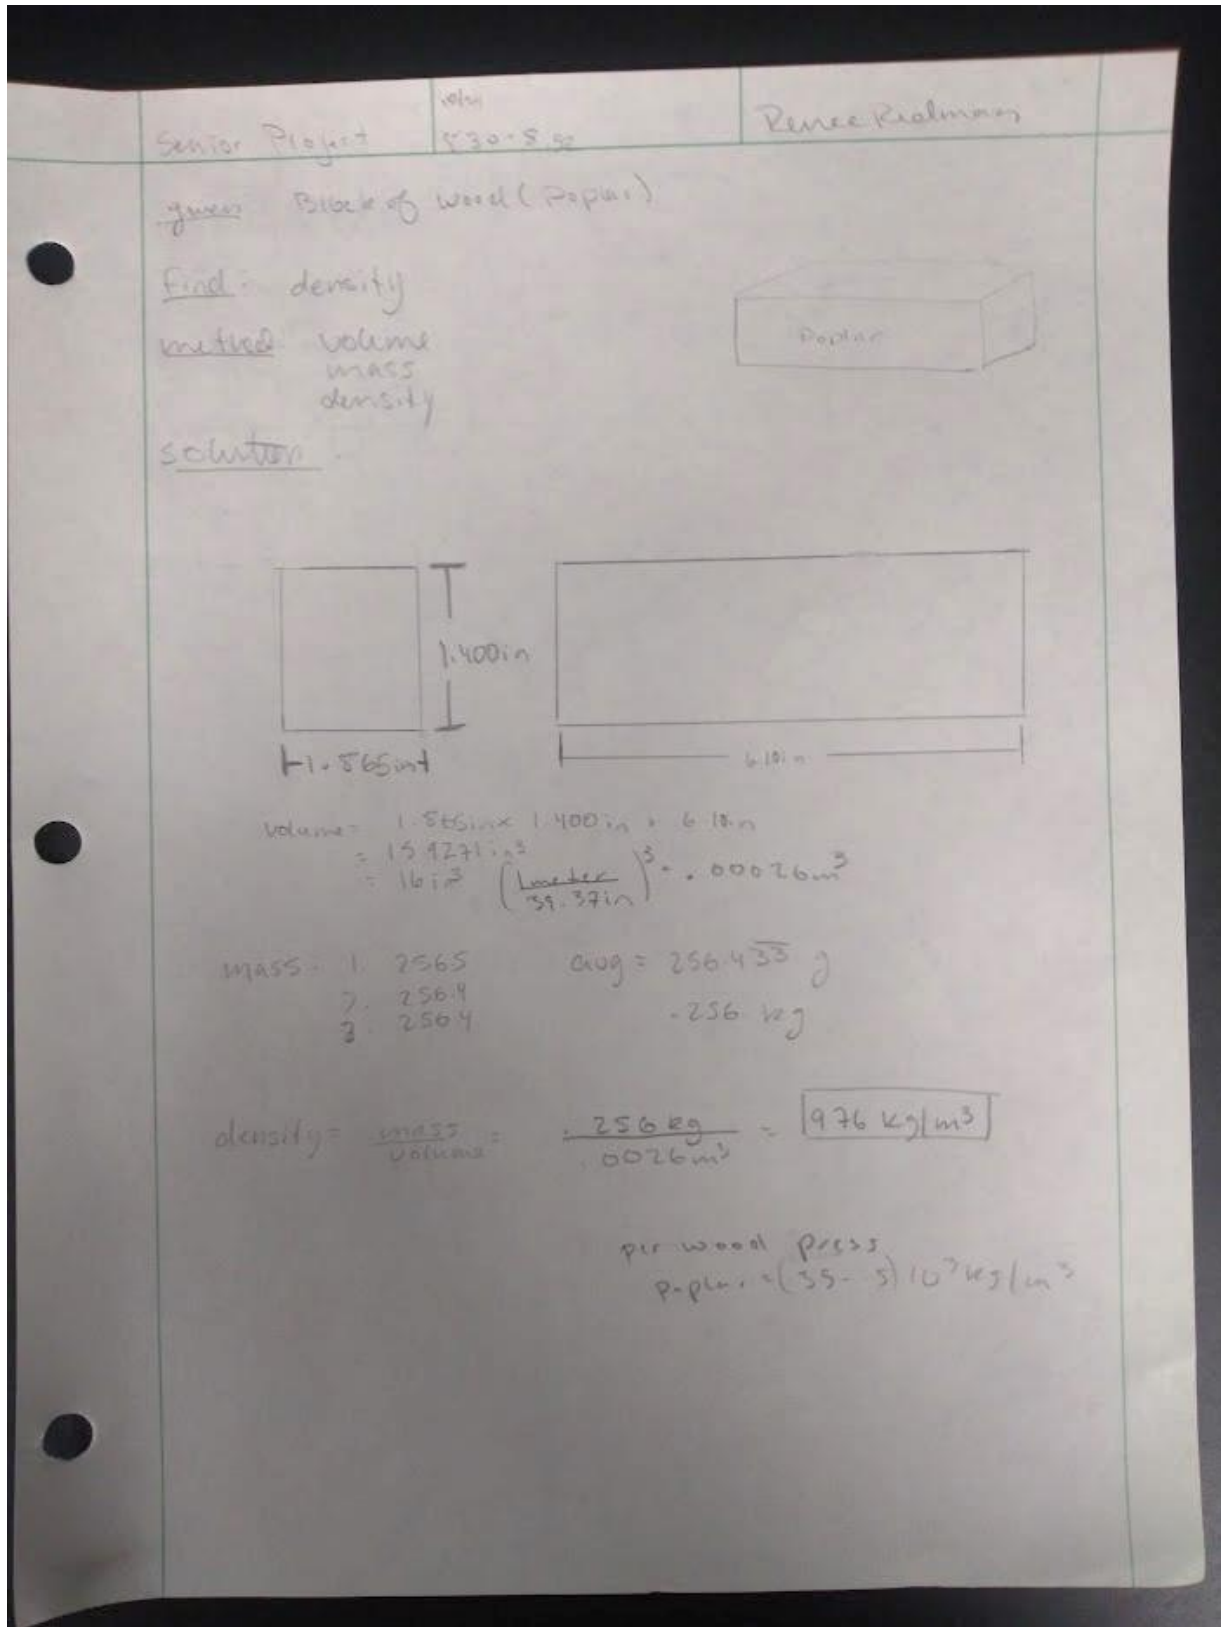 Senior Project
Renee
given Block of wood (Poplar)
Find: density
method volume
mass
density
Poplar
solution
1.400in
1.565in
6.10in
volume = 1.565in x 1.400in x 6.10in
= 15.9271in³
= 16in³ (1meter/39.37in)³ = .00026m³
mass - 1. 256.5 avg = 256.433 g
2. 256.4 .256 kg
3. 256.4
density = mass/volume = .256kg/.0026m³ = 976 kg/m³
per wood press